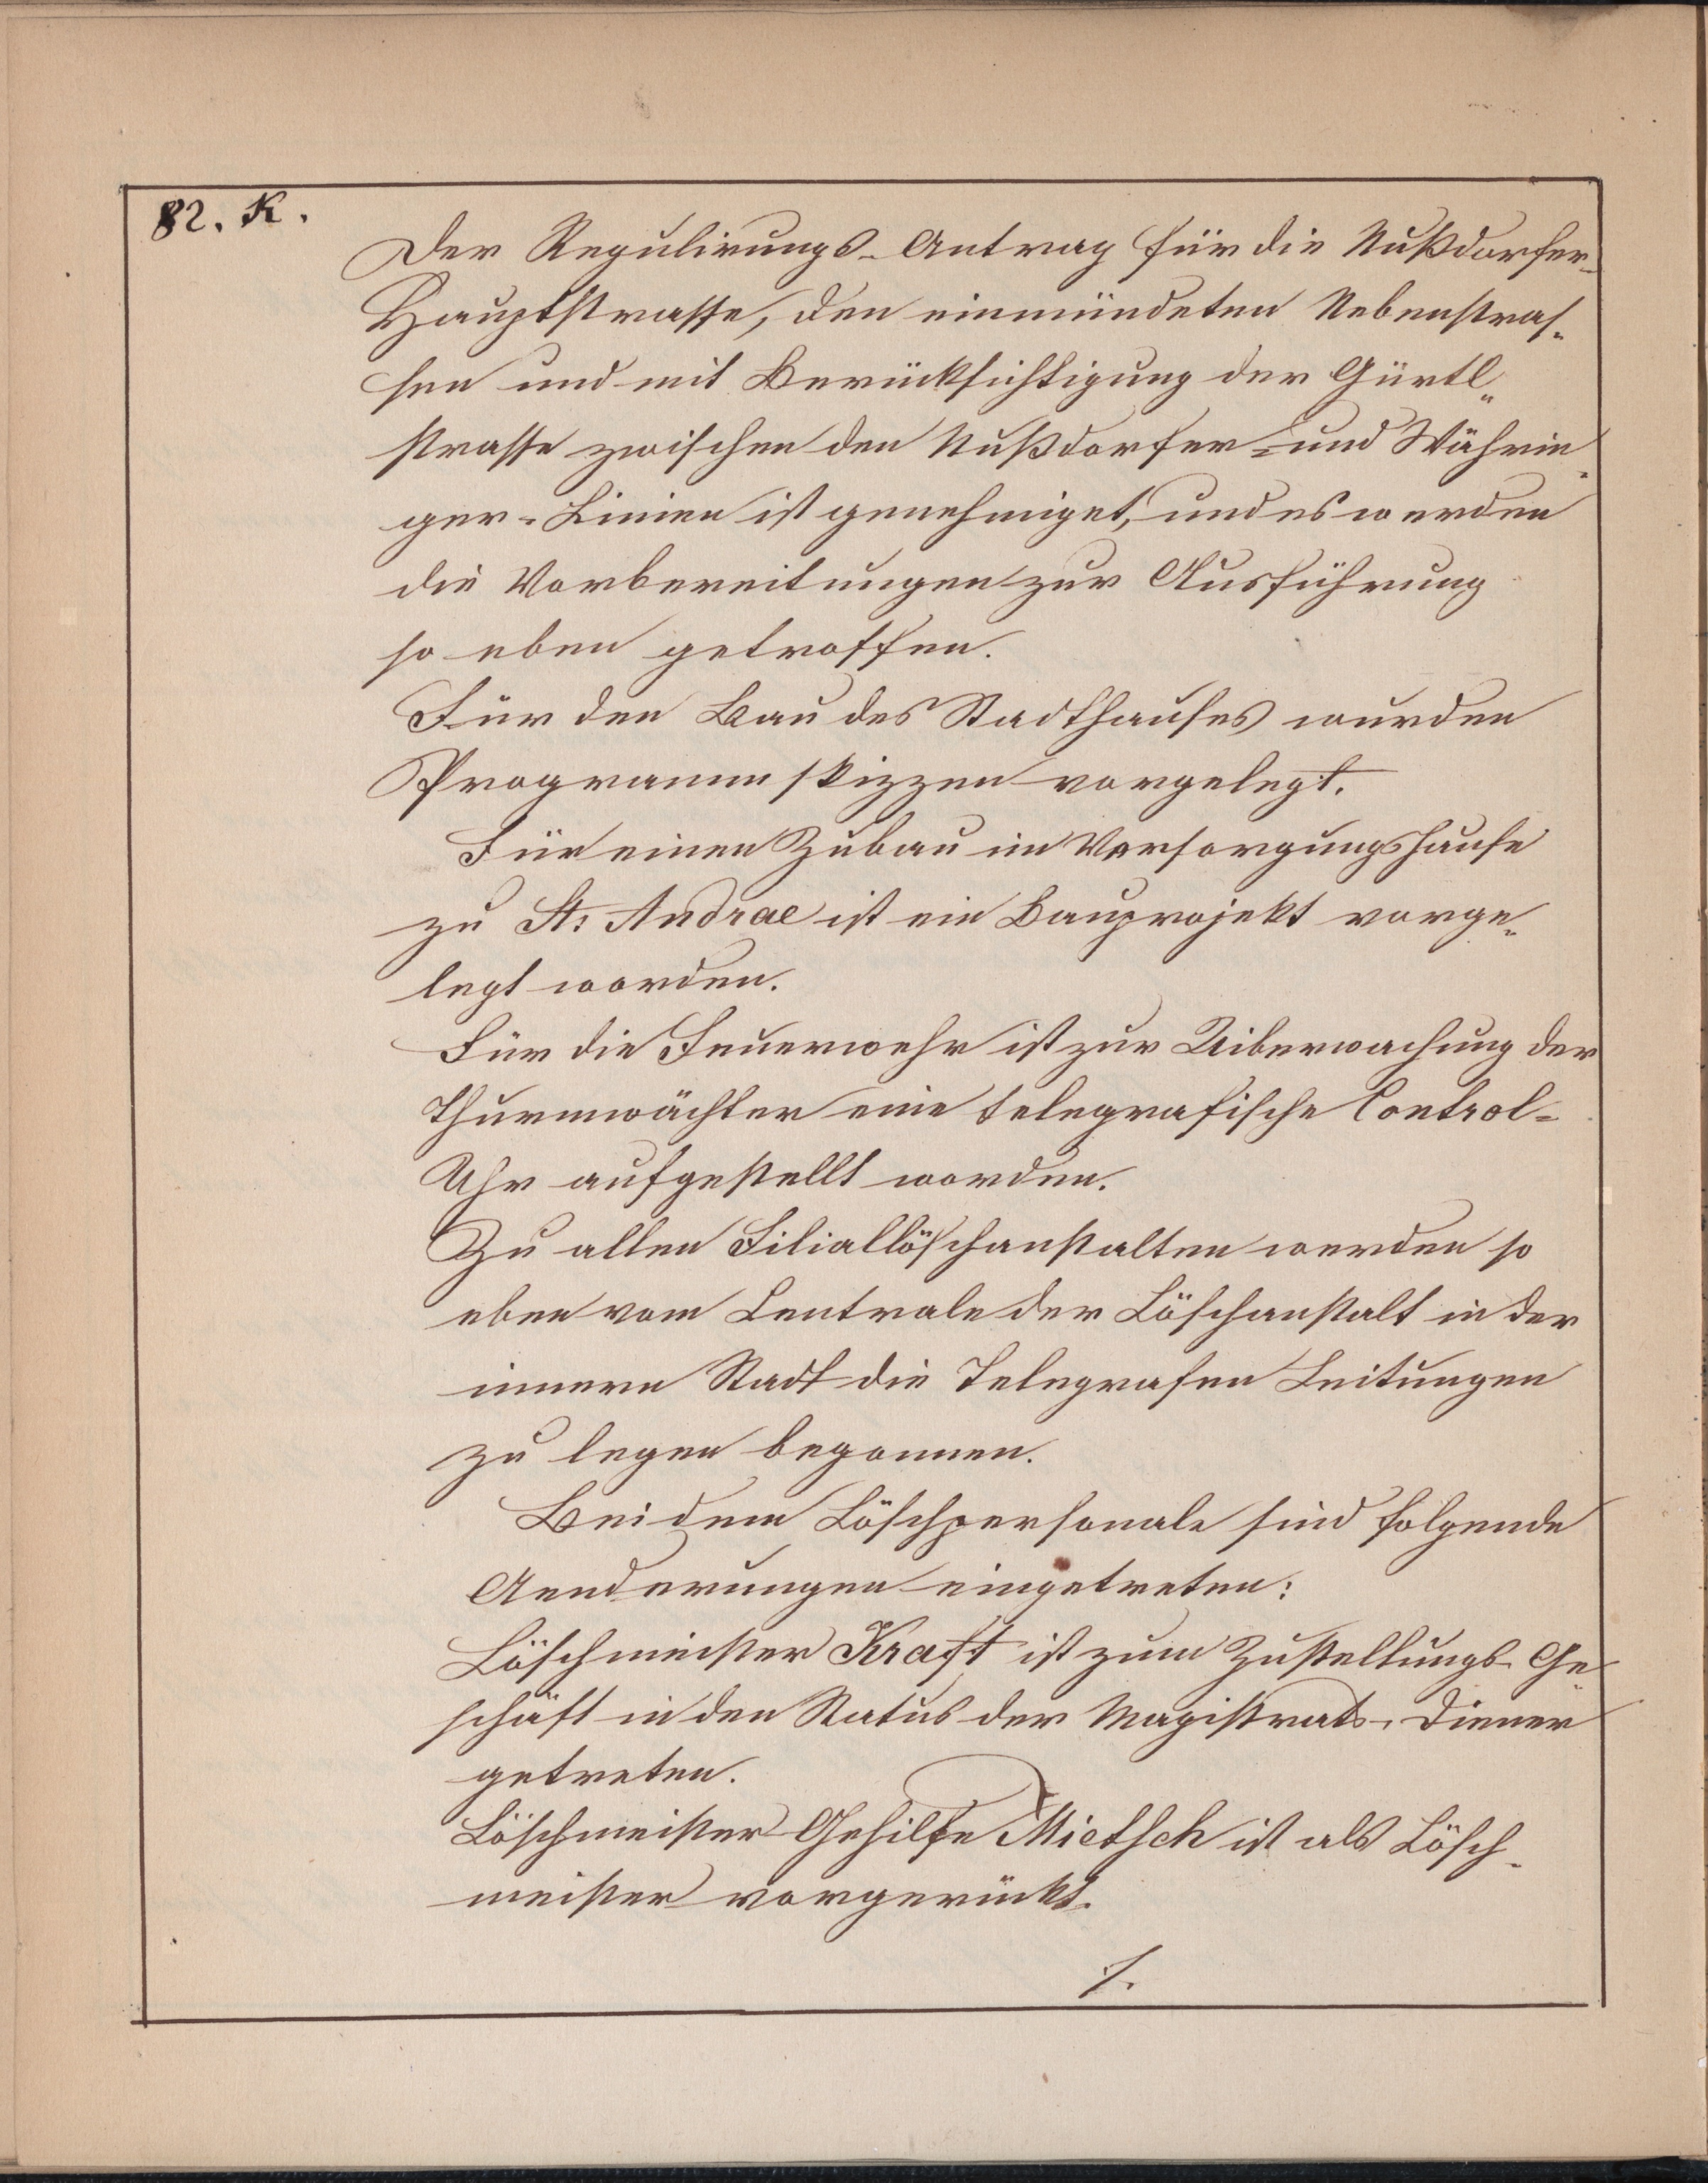 82. K.
Der Regulirungs-Antrag für die Nußdorfer-
Hauptstrasse, den einmündeten Nebenstras-
sen und mit Berücksichtigung der Gürtl-
strasse zwischen den Nußdorfer- und Währin-
ger-Linien ist genehmiget, und es werden
die Vorbereitungen zur Ausführung
so eben getroffen.
Für den Bau des Stadthauses wurden
Programmskizzen vorgelegt.
Für einen Zubau im Versorgungshause
zu St: Andrae ist ein Bauprojekt vorge-
legt worden.
Für die Feuerwehr ist zur Uiberwachung der
Thurmwächter eine telegrafische Control-
Uhr aufgestellt worden.
Zu allen Filiallöschanstalten werden so
eben vom Centrale der Löschanstalt in der
innern Stadt die Telegrafen Leitungen
zu legen begonnen.
Bei dem Löschpersonale sind folgende
Aenderungen eingetreten:
Löschmeister Kraft ist zum Zustellungs-Ge-
schäft in den Status der Magistrats-Diener
getreten.
Löschmeister-Gehilfe Mietsch ist als Lösch-
meister vorgerückt.
./.